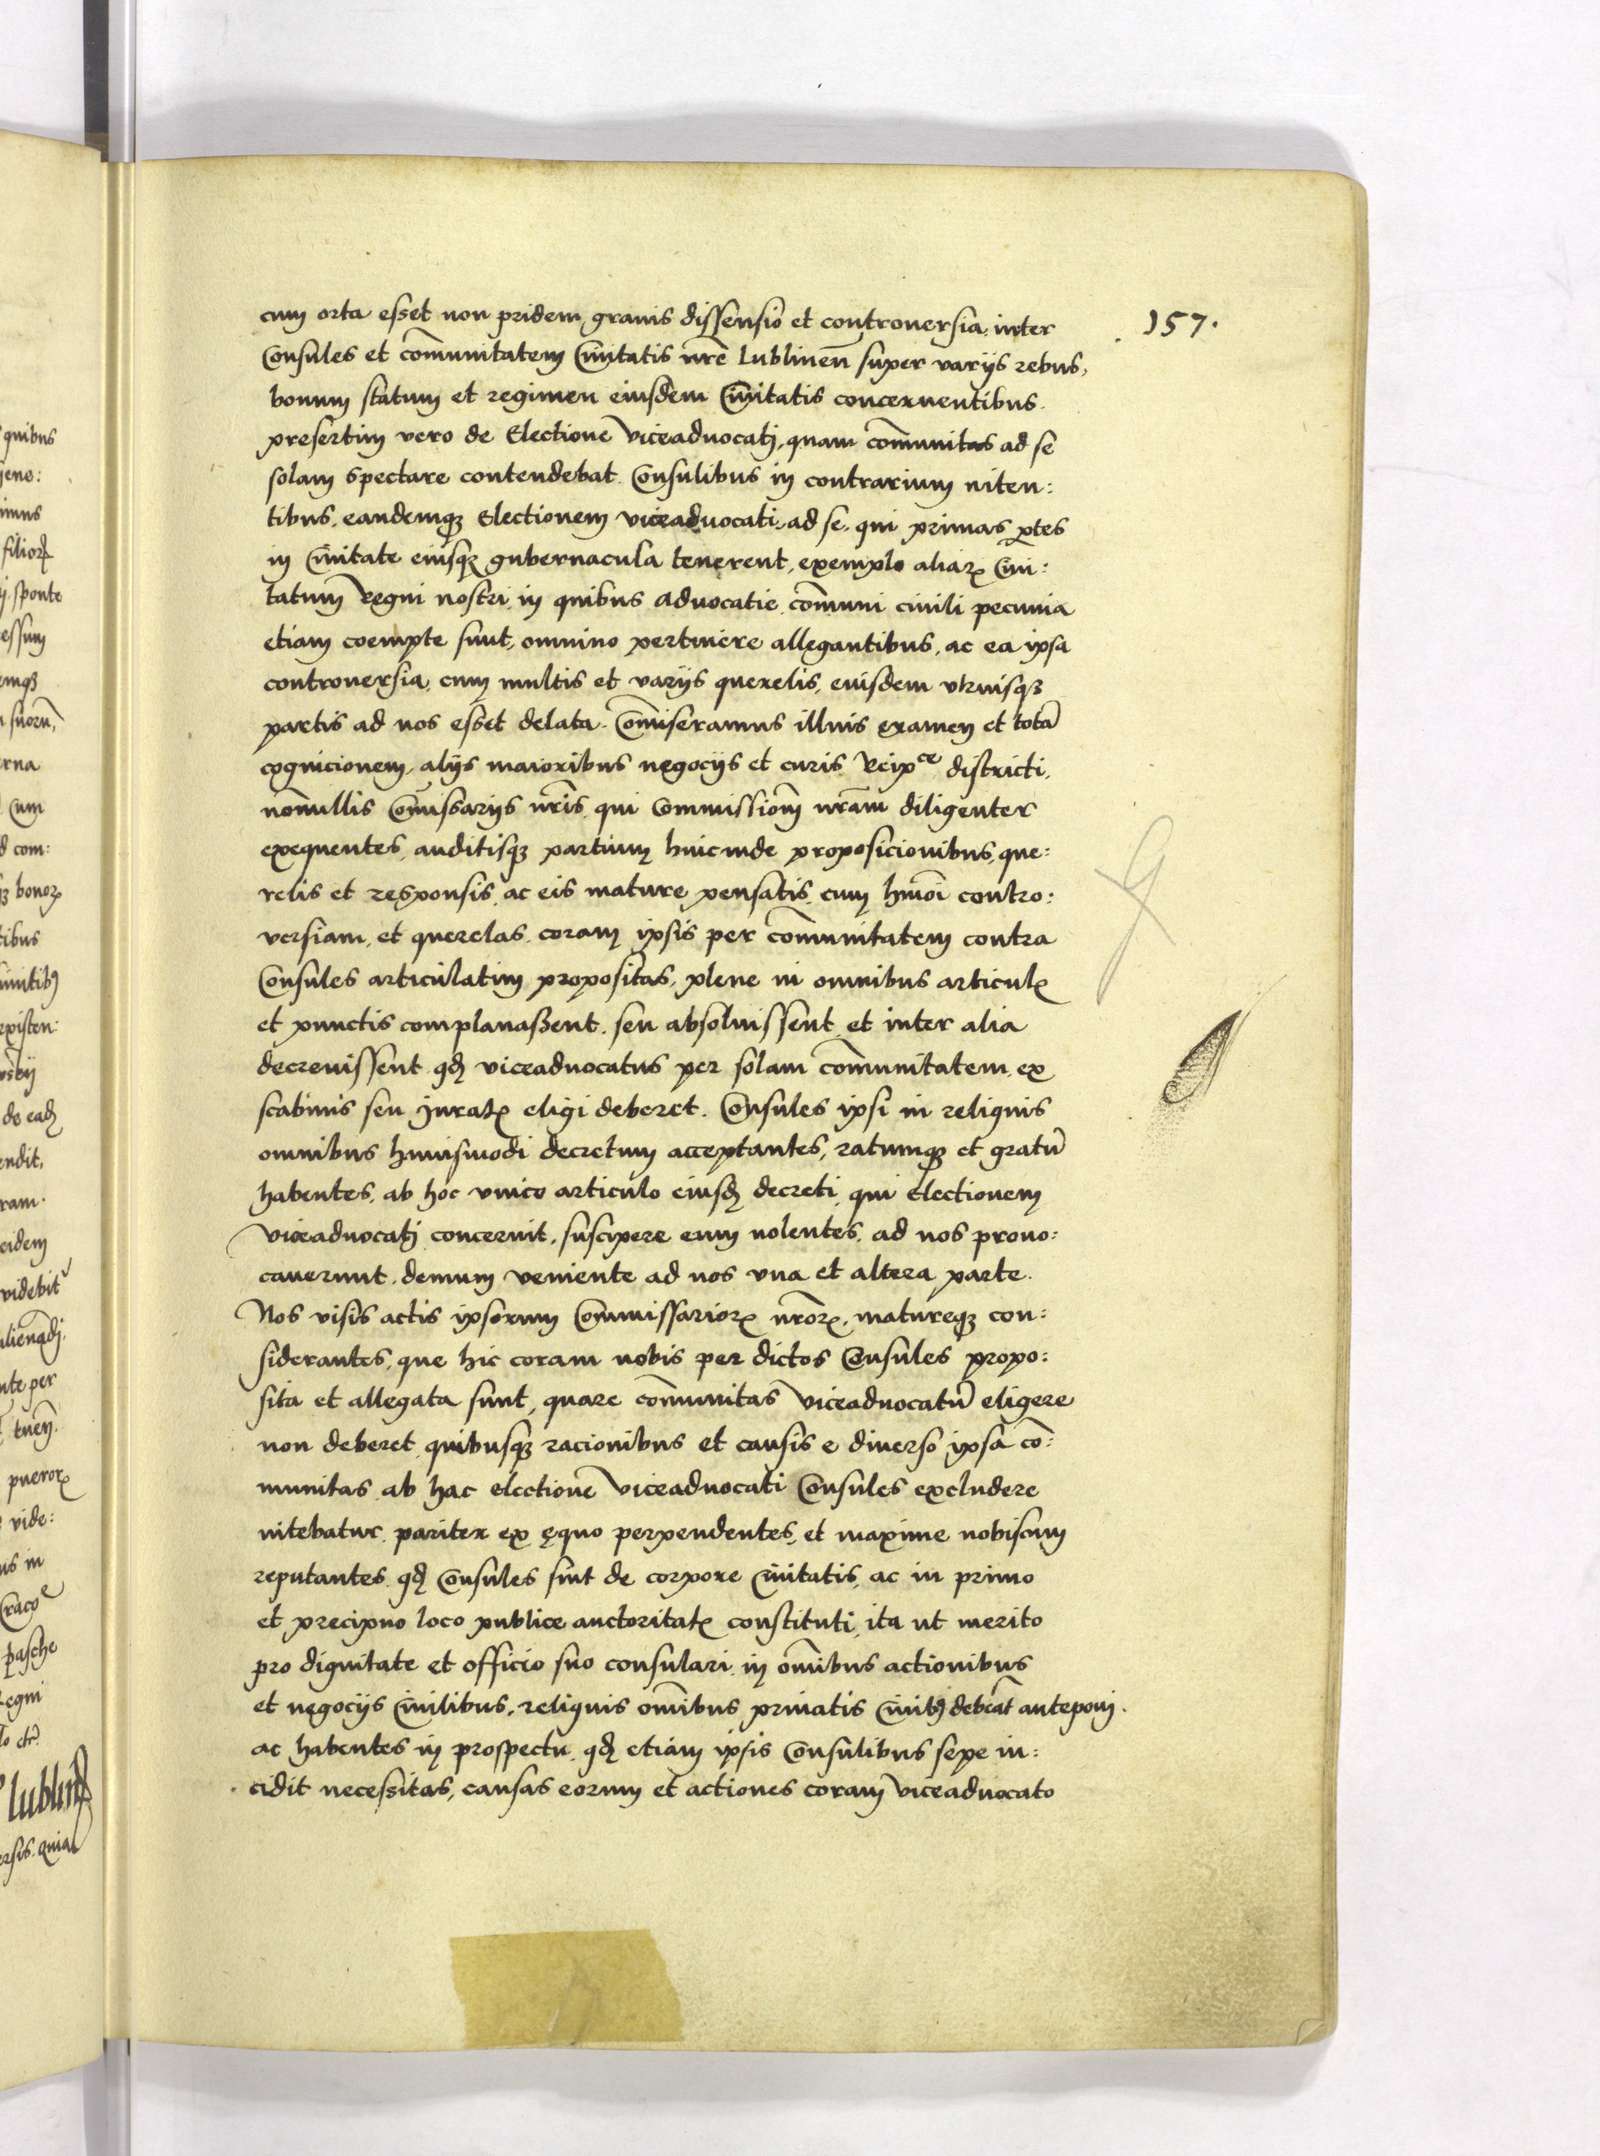 157.
cum orta esset non pridem grauis dissensio et controuersia inter
Consules et com̄unitatem Ciuitatis nr̄e Lublinen̄ super varijs rebus,
bonum statum et regimen eiusdem Ciuitatis concernentibus.
presertim vero de Electione viceaduocatj, quam com̄unitas ad se
solam spectare contendebat Consulibus in contrarium niten:
tibus, eandemqȝ Electionem viceaduocati ad se, qui primas ꝑtes
in Ciuitate eiusqȝ gubernacula tenerent, exemplo aliarꝝ Ciui:
tatum Regni nostri in quibus aduocatie com̄uni ciuili pecunia
etiam coempte sunt, omnino pertinere allegantibus, ac ea ipsa
controuersia cum multis et varijs querelis, eiusdem vtriusqȝ
partis ad nos esset delata. Com̄iseramus illius examen et totā
cognicionem, alijs maioribus negocijs et curis Reipce districti,
nonnullis Com̄issarijs nr̄is qui Commissionē nr̄am diligenter
exequentes, auditisqȝ partium hincinde proposicionibus, que:
relis et responsis, ac eis mature pensatis, cum hm̄oi contro:
versiam, et querelas, coram ipsis per com̄unitatem contra
Consules articulatim propositas, plene in omnibus articulꝭ
et punctis complanassent, seu absoluissent, et inter alia
decreuissent qđ viceaduocatus per solam com̄unitatem ex
scabinis seu Juratꝭ eligi deberet. Consules ipsi in reliquis
omnibus huiusmodi decretum acceptantes, ratumqȝ et gratū
habentes, ab hoc vnico articulo eiusđ decreti, qui Electionem
viceaduocatj concernit, suscipere eum nolentes, ad nos prouo:
cauerunt, demum veniente ad nos vna et altera parte.
Nos visis actis ipsorum Commissariorꝝ nr̄orꝝ, matureqȝ con:
siderantes, que hic coram nobis per dictos Consules propo:
sita et allegata sunt, quare com̄unitas viceaduocatū eligere
non deberet, quibusqȝ racionibus et causis e diuerso ipsa cō:
munitas ab hac electione viceaduocati Consules excludere
nitebatur, pariter ex ęquo perpendentes, et maxime nobiscum
reputantes, qđ Consules sint de corpore Ciuitatis, ac in primo
et precipuo loco publice auctoritatꝭ constituti, ita ut merito
pro dignitate et officio suo consulari in om̄ibus actionibus
et negocijs Ciuilibus, reliquis om̄ibus priuatis Ciuibꝰ debeāt anteponi.
ac habentes in prospectu, qđ etiam ipsis Consulibus sepe in:
cidit necessitas, causas eorum et actiones coram viceaduocato